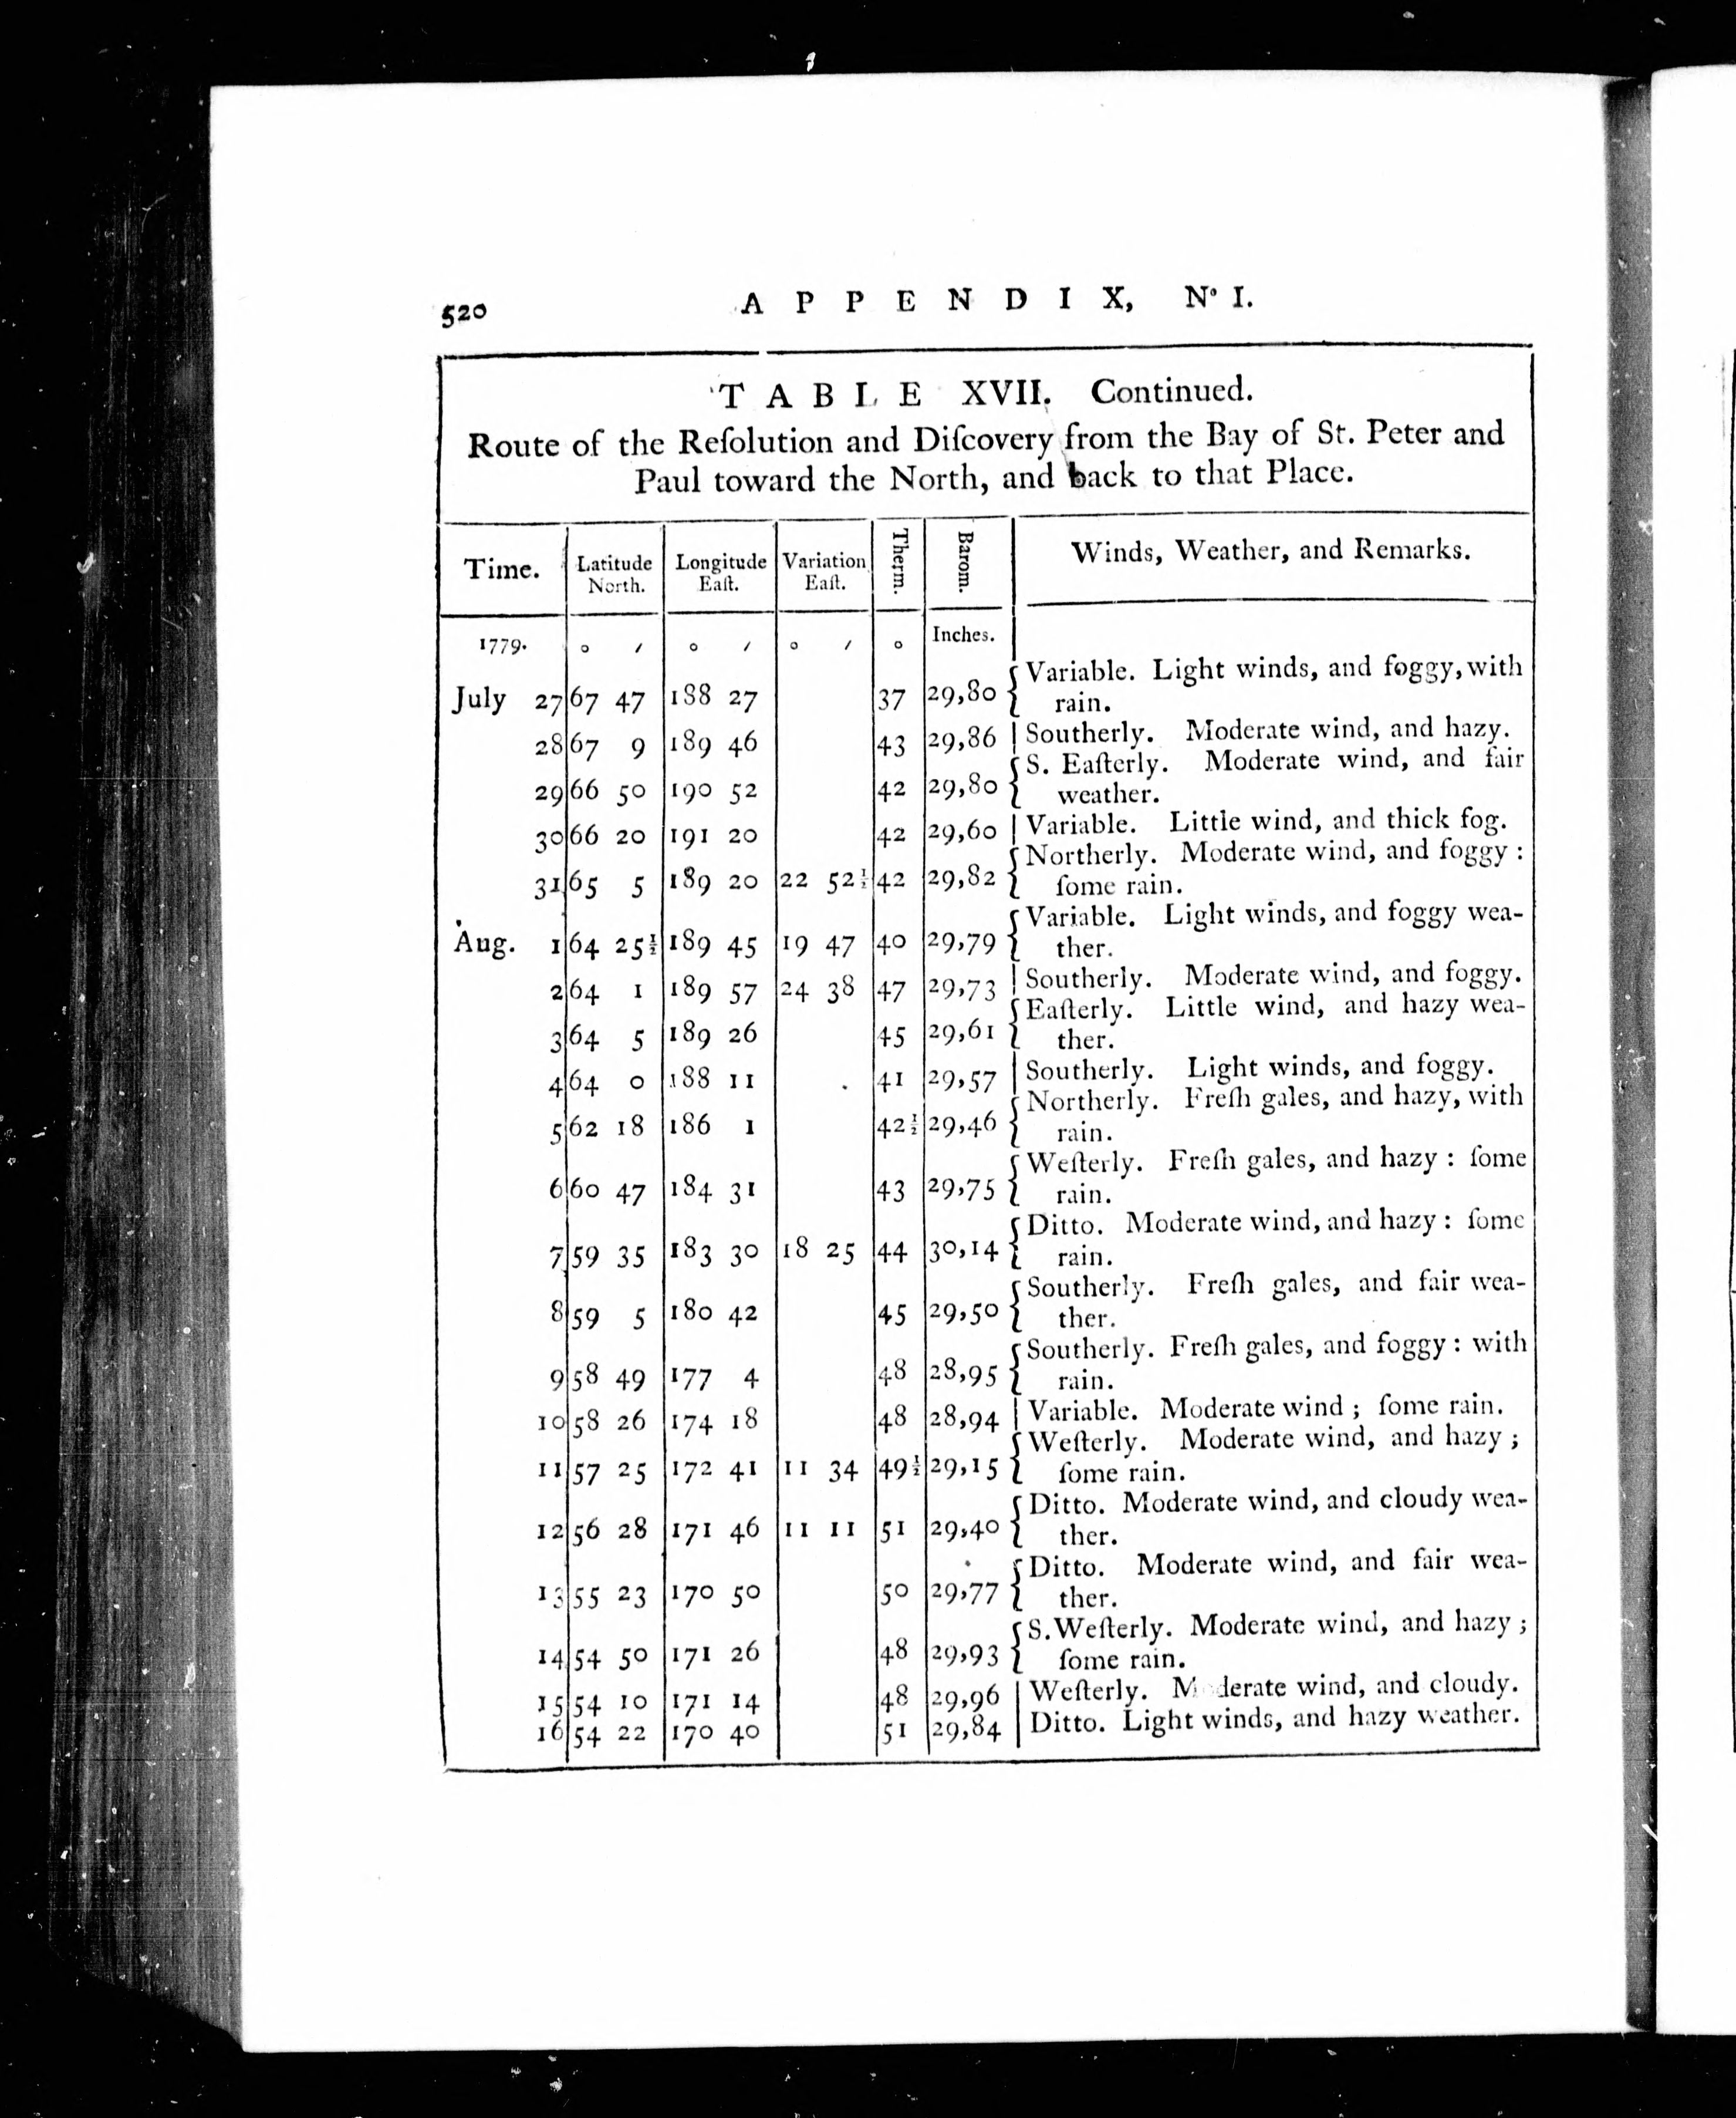 520 APPENDIX, Nº I.
TABLE XVII. Continued.
Route of the Reſolution and Diſcovery from the Bay of St. Peter and
Paul toward the North, and back to that Place.
Time. Latitude North. Longitude Eaſt. Variation Eaſt. Therm. Barom. Winds, Weather, and Remarks.
1779. o / o / o / o Inches.
July 27 67 47 188 27 37 29,80 Variable. Light winds, and foggy, with
rain.
28 67 9 189 46 43 29,86 Southerly. Moderate wind, and hazy.
29 66 50 190 52 42 29,80 S. Eaſterly. Moderate wind, and fair
weather.
30 66 20 191 20 42 29,60 Variable. Little wind, and thick fog.
31 65 5 189 20 22 52½ 42 29,82 Northerly. Moderate wind, and foggy :
ſome rain.
Aug. 1 64 25½ 189 45 19 47 40 29,79 Variable. Light winds, and foggy wea-
ther.
2 64 1 189 57 24 38 47 29,73 Southerly. Moderate wind, and foggy.
3 64 5 189 26 45 29,61 Eaſterly. Little wind, and hazy wea-
ther.
4 64 0 188 11 41 29,57 Southerly. Light winds, and foggy.
5 62 18 186 1 42½ 29,46 Northerly. Freſh gales, and hazy, with
rain.
6 60 47 184 31 43 29,75 Weſterly. Freſh gales, and hazy : ſome
rain.
7 59 35 183 30 18 25 44 30,14 Ditto. Moderate wind, and hazy : ſome
rain.
8 59 5 180 42 45 29,50 Southerly. Freſh gales, and fair wea-
ther.
9 58 49 177 4 48 28,95 Southerly. Freſh gales, and foggy : with
rain.
10 58 26 174 18 48 28,94 Variable. Moderate wind ; ſome rain.
11 57 25 172 41 11 34 49½ 29,15 Weſterly. Moderate wind, and hazy ;
ſome rain.
12 56 28 171 46 11 11 51 29,40 Ditto. Moderate wind, and cloudy wea-
ther.
13 55 23 170 50 50 29,77 Ditto. Moderate wind, and fair wea-
ther.
14 54 50 171 26 48 29,93 S. Weſterly. Moderate wind, and hazy ;
ſome rain.
15 54 10 171 14 48 29,96 Weſterly. Moderate wind, and cloudy.
16 54 22 170 40 51 29,84 Ditto. Light winds, and hazy weather.